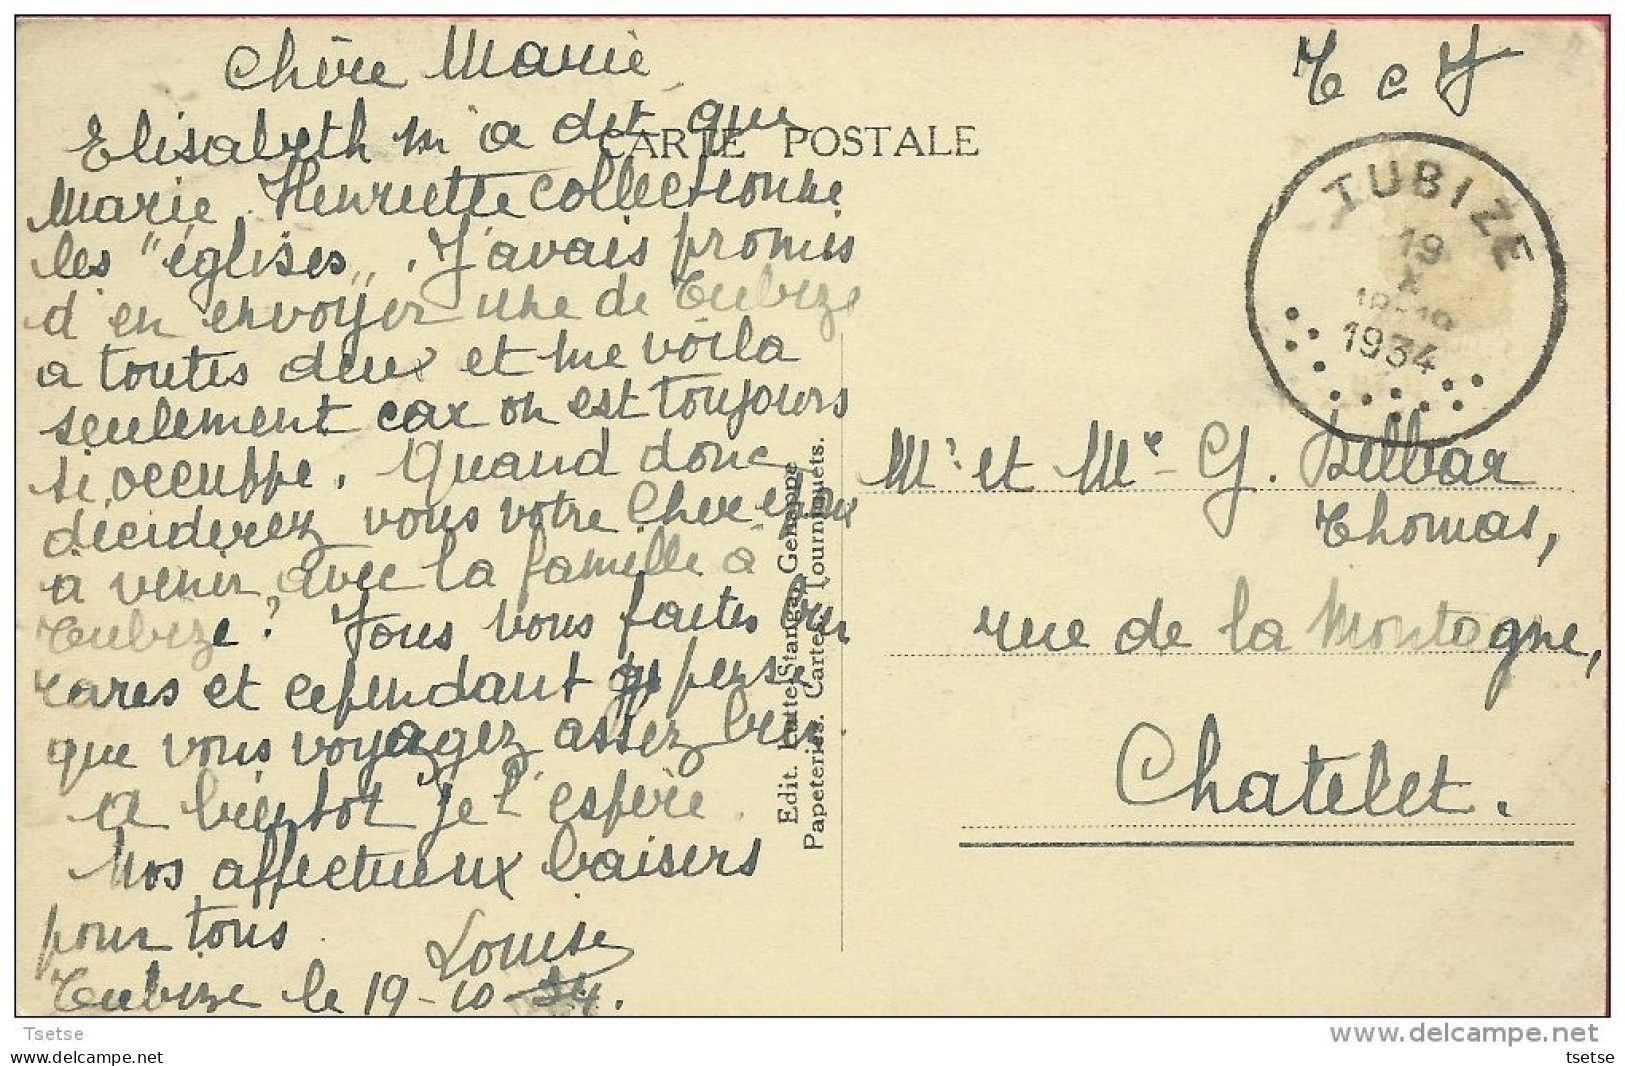 Chère Marie
Elisabeth m'a dit que
Marie Henriette collectionne
les "églises". J'avais promis
d'en envoyer une de Tubize
a toutes deux et me voila
seulement car on est toujours
si occuppe. Quand donc
déciderez vous votre cher epoux
a venir, avec la famille à
Tubize? Vous vous faites bien
rares et cependant je pense
que vous voyagez assez bien.
A bientot je l'espère.
Nos affectueux baisers
pour tous.
Louise
Tubize le 19-10-34.
CARTE POSTALE
Edit. Lutte-Stanga, Genappe
Papeteries. Cartes. Tourniquets.
T c J
TUBIZE
19
X
18-19
1934
Mr et Me - G. Delbar
Thomas,
rue de la Montagne,
Chatelet.
Tsetse
delcampe.net
tsetse
tsetse